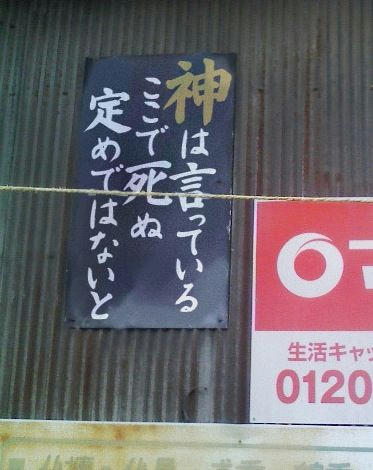 神は言っている
ここで死ぬ
定めではないと
生活キャッ
0120